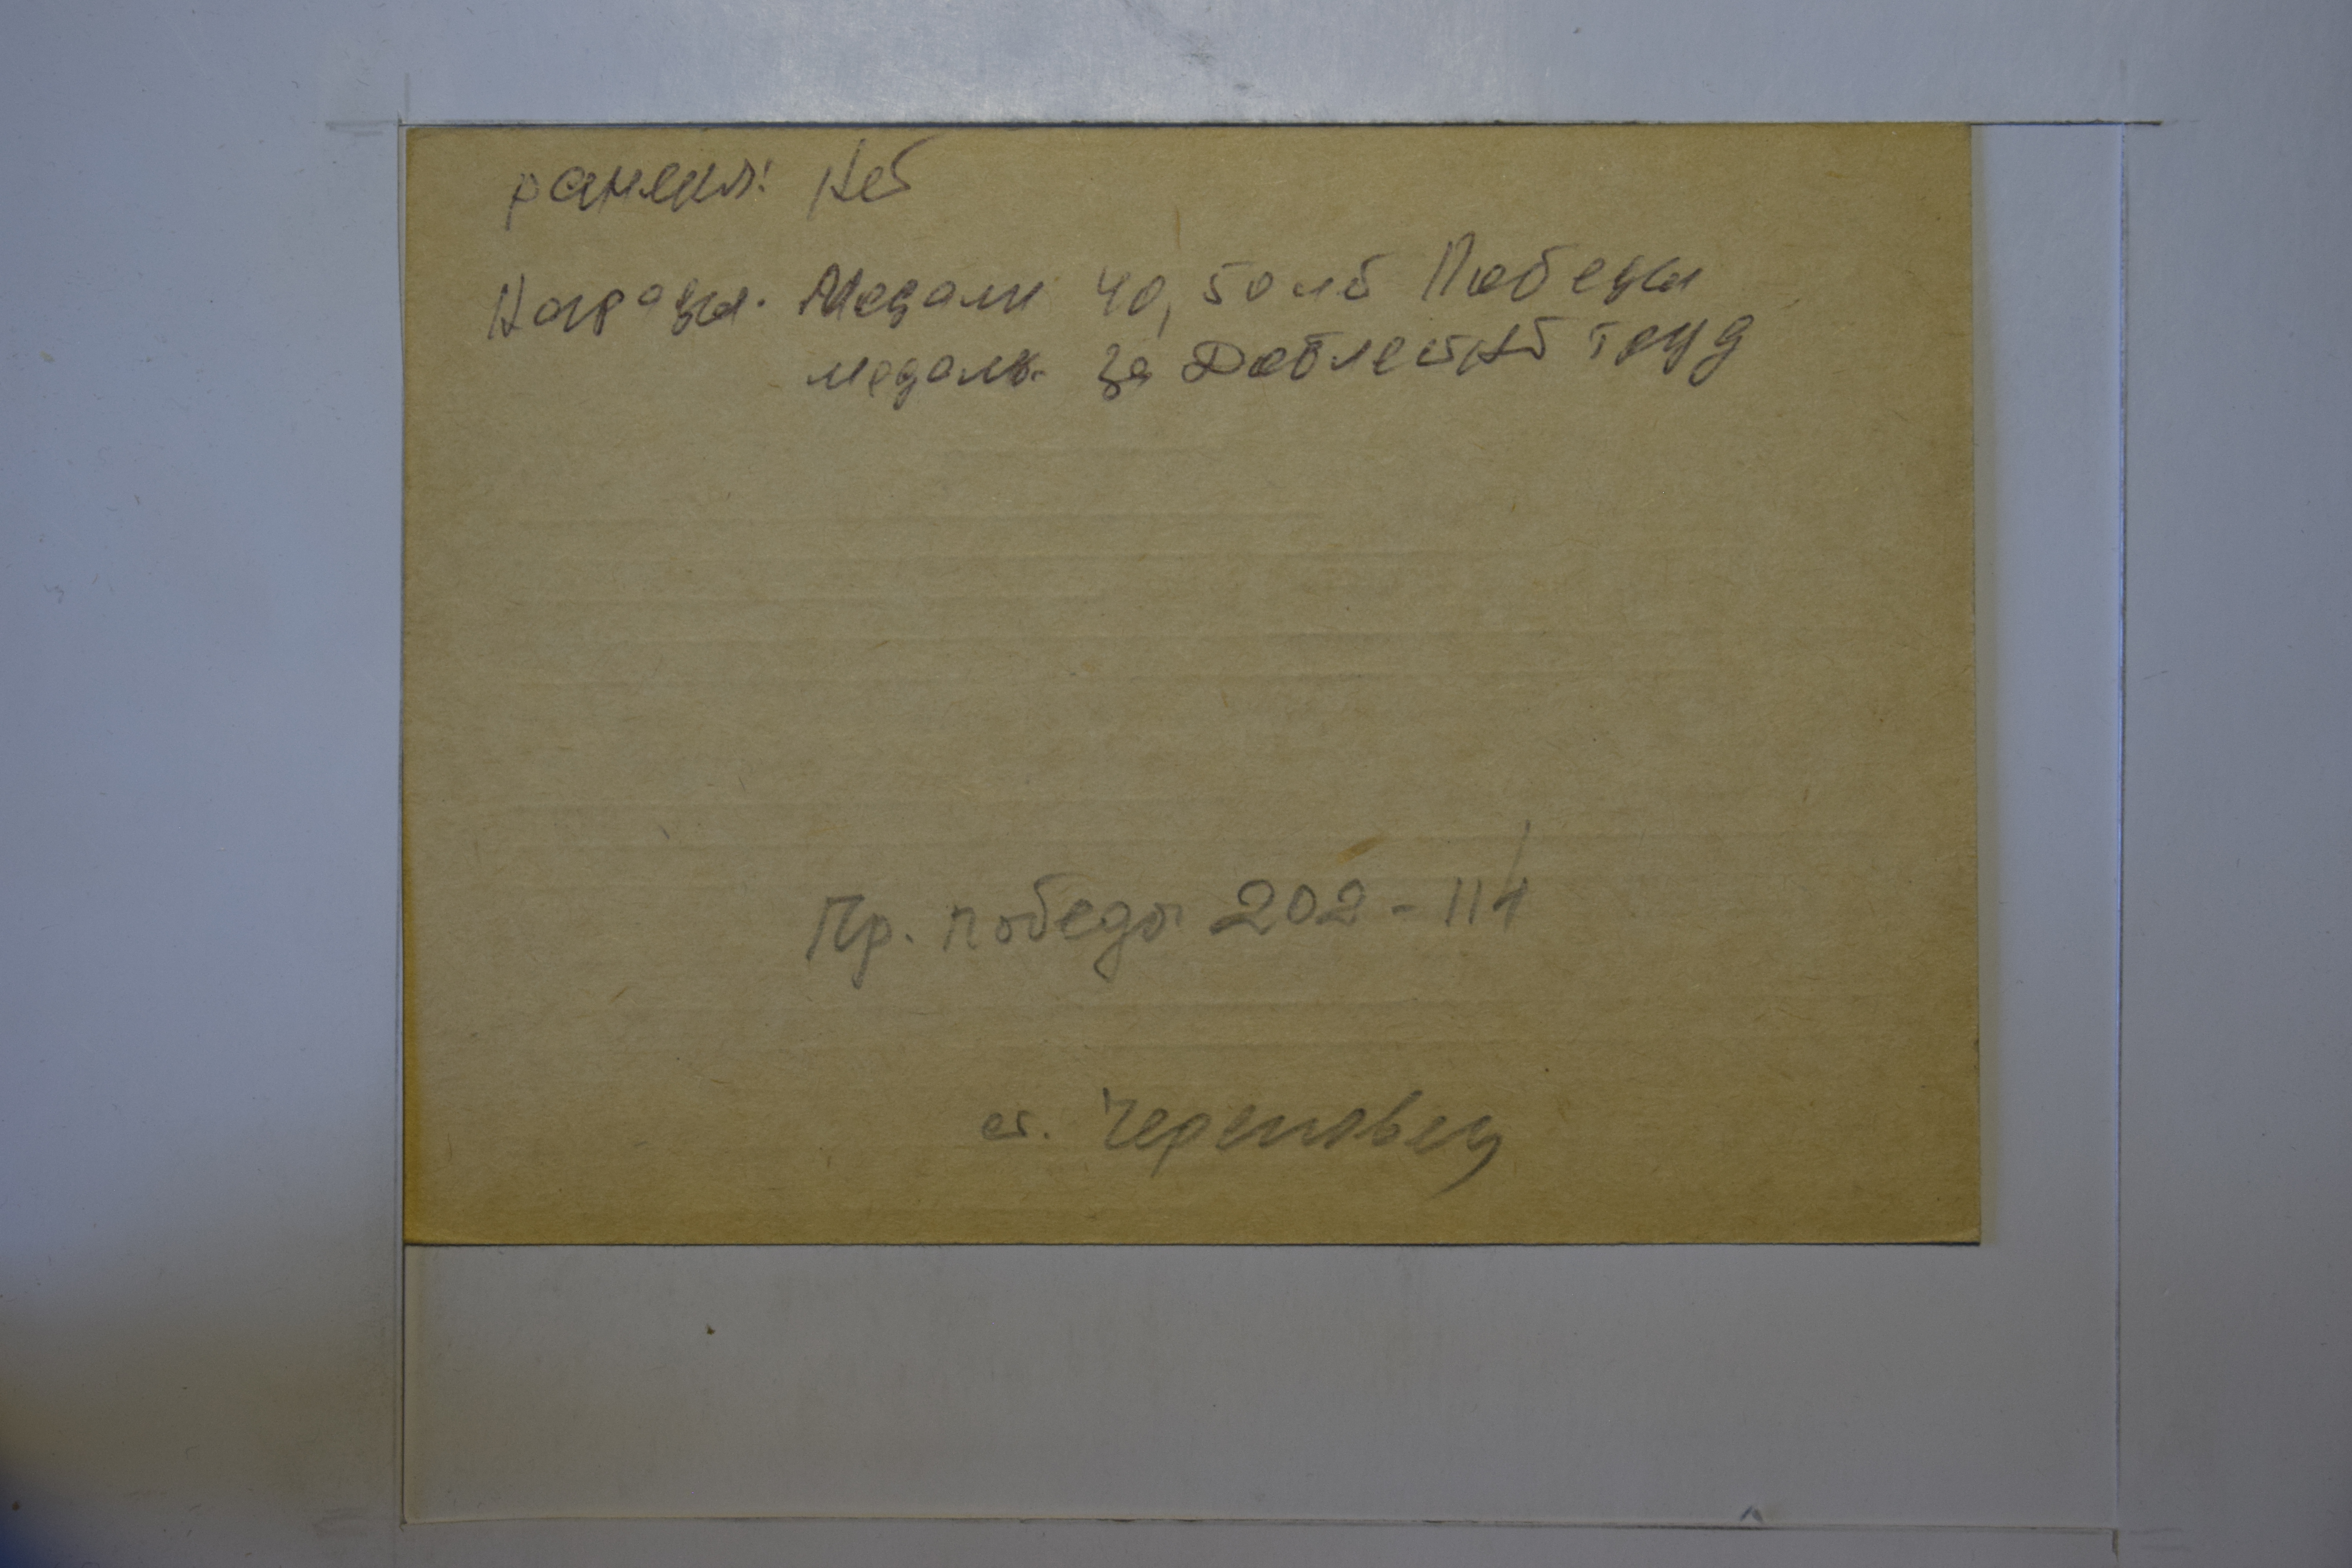 ранения: Нет
Награды. Медали 40, 50 лет Победы
медаль за Доблестный труд
Пр. победы 202-114
ст. Череповец